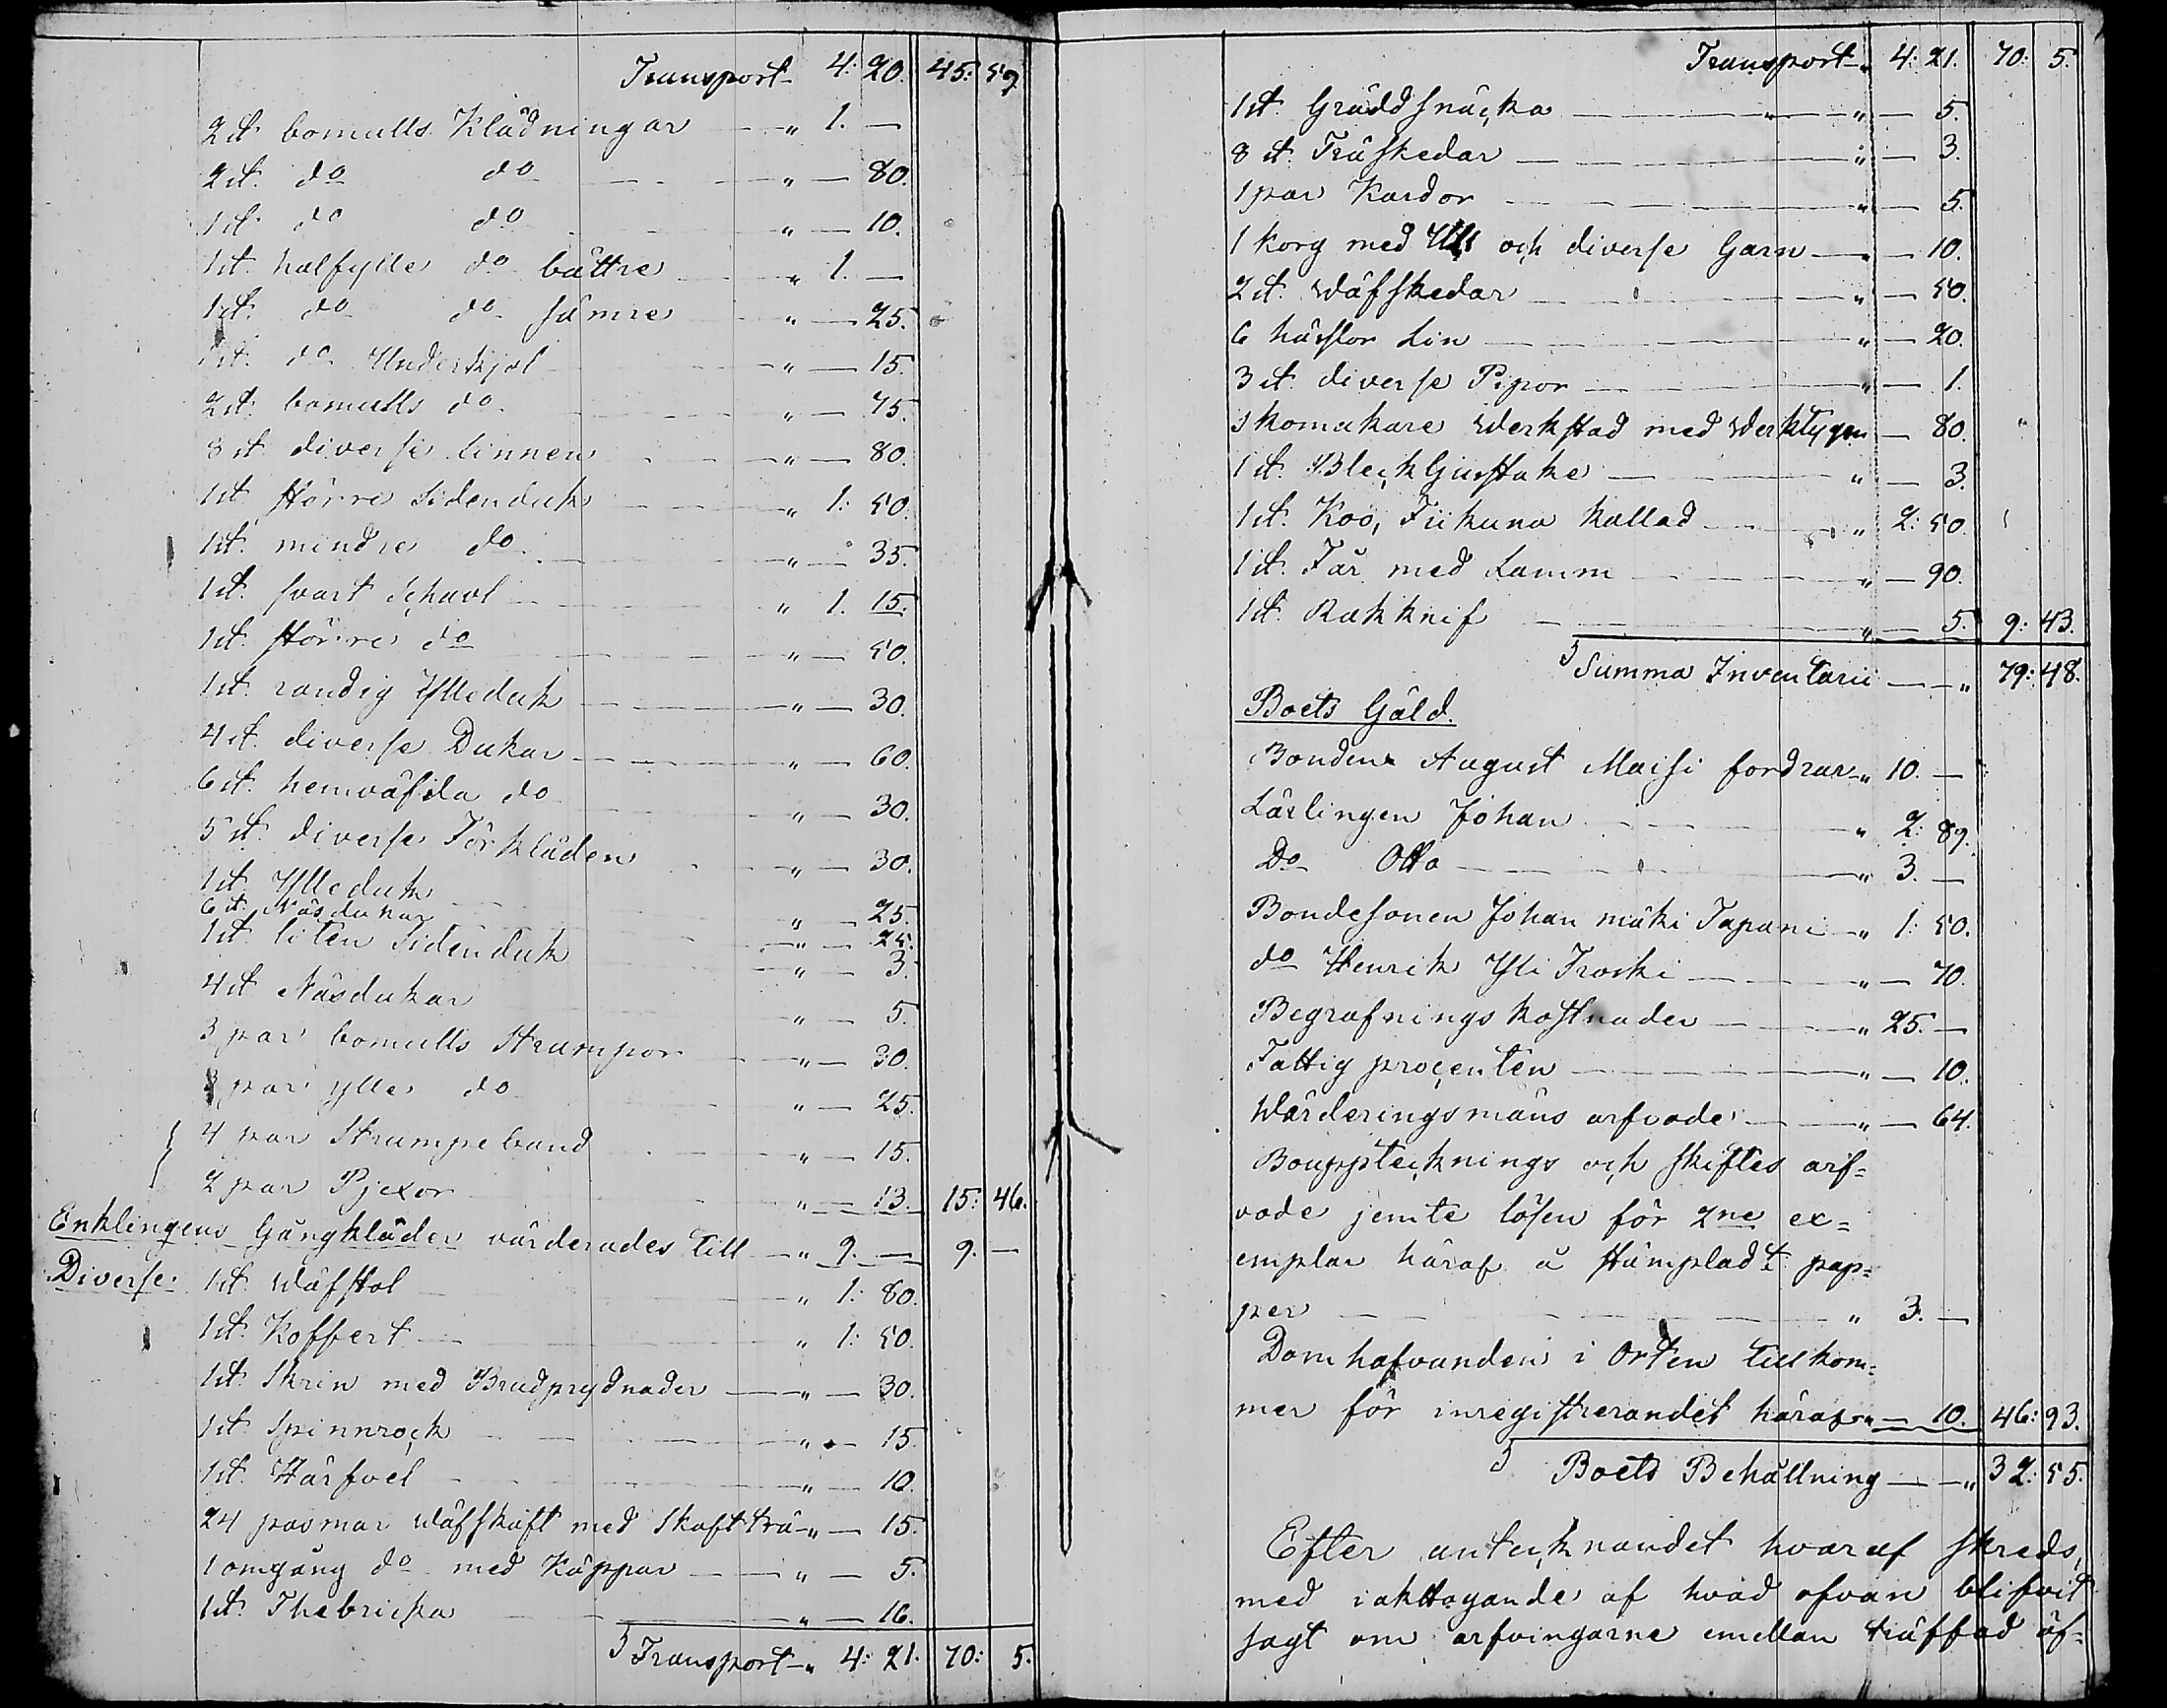 Transport 4: 20. 45: 59
2 st. bomulls Klädningar — " 1. —
2 st. do do — " — 80.
1 st. do do — " — 10.
1 st. halfylle do bättre — " 1. —
1 st. do do sämre — " — 25.
1 st. do Underkjol — " — 15.
2 st. bomulls do — " — 75.
8 st. diverse linnen — " — 80.
1 st. större Sidenduk — " 1: 50.
1 st. mindre do — " — 35.
1 st. svart Schavl — " 1. 15.
1 st. större do — " — 50.
1 st. randig Ylleduk — " — 30.
4 st. diverse Dukar — " — 60.
6 st. hemväfda do — " — 30.
5 st. diverse Förkläden — " — 30.
1 st. Ylleduk — " — 25.
6 st. Näsdukar — " — 25.
1 st. liten Sidenduk — " — 3.
4 st. Näsdukar — " — 5.
3 par bomulls Strumpor — " — 30.
3 par ylle do — " — 25.
4 par Strumpeband — " — 15.
2 par Pjexor — " — 13. 15: 46.
Enklingens Gångkläder värderades till — " 9. — 9. —
Diverse. 1 st. Wäfstol — " 1: 80.
1 st. Koffert — " 1: 50.
1 st. Skrin med Brudprydnader — " — 30.
1 st. Spinnrock — " — 15.
1 st. Härfvel — " — 10.
24 pasmar Wäfskäft med Skaftträ — " — 15.
1 omgång do med Käppar — " — 5.
1 st. Thebricka — " — 16.
Transport — " 4: 21. 70: 5.
Transport — " 4: 21. 70: 5.
1 st. Gräddsnäcka — " — 5.
8 st. Träskedar — " — 3.
1 par Kardor — " — 5.
1 korg med Ull och diverse Garn — " — 10.
2 st. Wäfskedar — " — 50.
6 härfvor Lin — " — 20.
3 st. diverse Pipor — " — 1.
Skomakare Werkstad med Werktygen — 80.
1 st. Bleck Ljusstake — " — 3.
1 st. Koo, Fiikuna kallad — " 2: 50.
1 st. Får med Lamm — " — 90.
1 st. Rakknif — " — 5. 9: 43.
Summa Inventarii — " 79: 48.
Boets Gäld.
Bonden August Maisi fordrar — " 10. —
Lärlingen Johan — " 2: 89.
Do Otto — " 3. —
Bondesonen Johan mäki Tapani — " 1: 50.
do Henrik Yli Troski — " — 70.
Begrafnings kostnader — " 25. —
Fattig procenten — " — 10.
Wärderingsmäns arfvode — " — 64.
Bouppteckning och skiftes arf-
vode jemte lösen för 2ne ex-
emplar häraf å stämpladt pap-
per — " 3. —
Domhafvanden i Orten tillkom-
mer för inregistrerandet häraf — " — 10. 46: 93.
Boets Behållning — " 32: 55.
Efter antecknandet hvaraf skreds,
med iakttagande af hvad ofvan blifvit
sagt om arfvingarne emellan träffad öf-